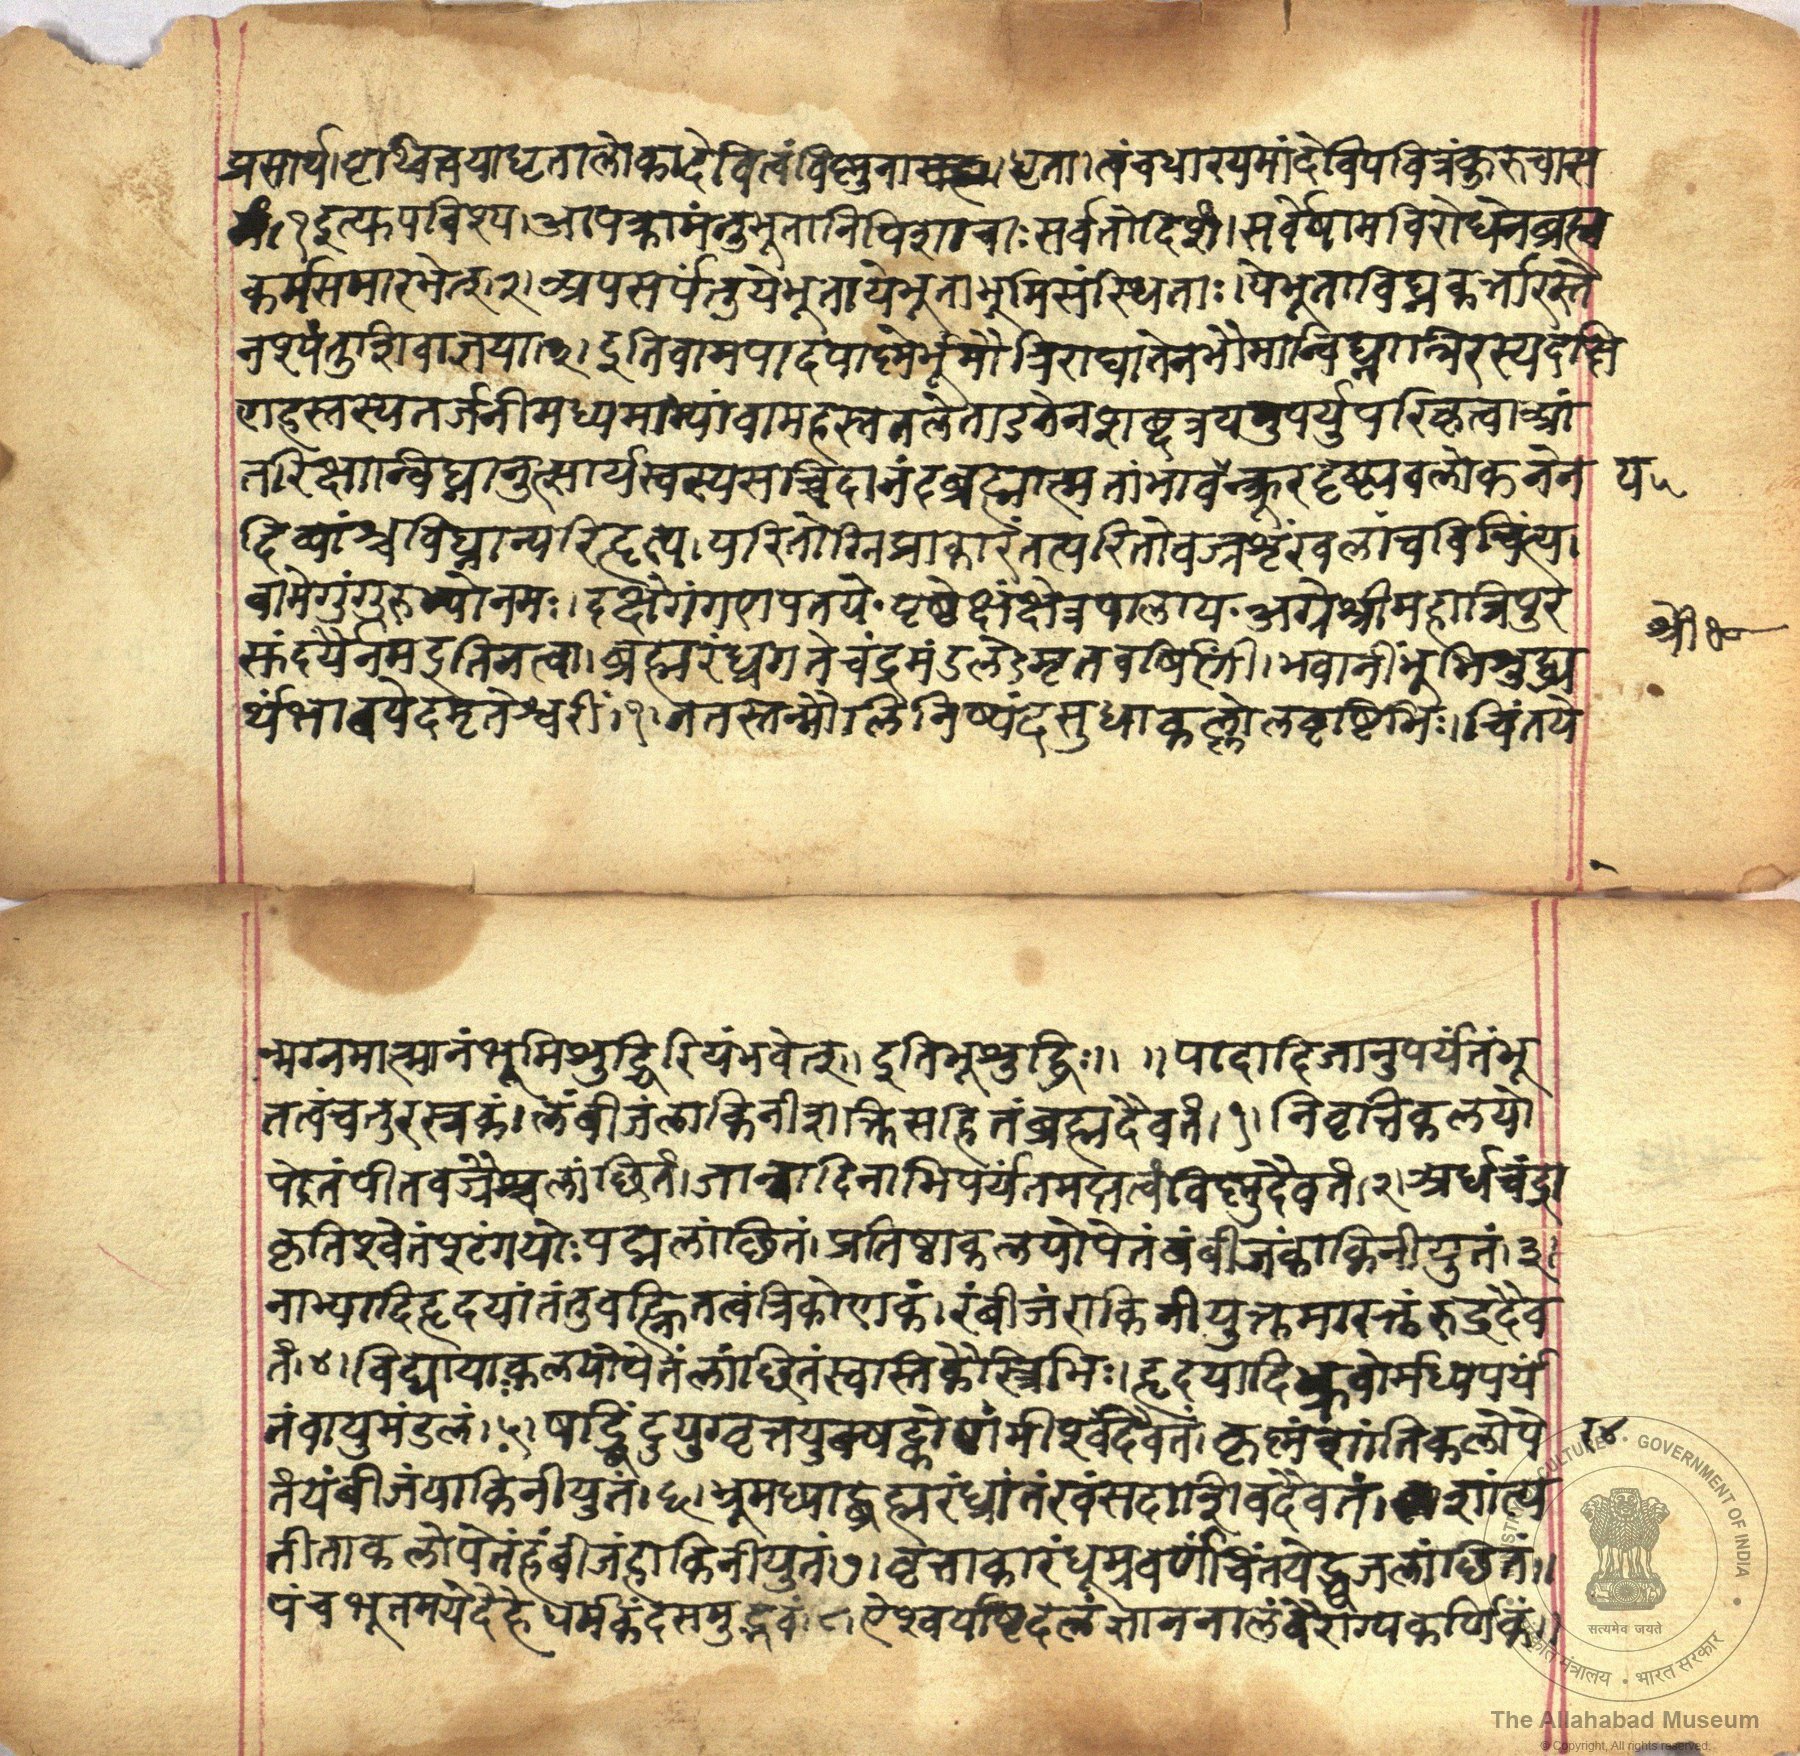 प्रसार्य।पृथ्वित्वयाधृतालोकादेवित्वंविष्णुना।धृता।त्वंचधारयमांदेविपवित्रंकुरुचास
नं।१इत्युपविश्य।आपक्रामंन्तुभूतानिपिशाचाः सर्वतोदिशं।सर्वेषामविरोधेनब्रह्म
कर्मसमारभेत्।२।अपसर्पंन्तुयेभूतायेभूताभूमिसंस्थिताः।येभूताविघ्नकर्त्तारस्ते
नश्यंतुशिवाज्ञया।३।इतिवामपादपार्ष्णेर्भूमौत्रिराघातेनभौमान्विघ्नान्निरस्यदक्षि
णहस्तस्यतर्जनीमध्यमाभ्यांवामहस्ततलेताडनेनशब्दत्रयमुपर्युपरिकृत्वाआं
तरिक्षान्विघ्नानुत्सार्यस्वस्यसच्चिदानंदब्रह्मात्मतांभावेन्क्रूरदृष्ट्यवलोकनेन
दिव्यांश्चविघ्नान्परिहृत्य।परितोग्निप्राकारंतत्परितोवज्रशृंखलांचविचिंत्य।
वामेगुंगुरुभ्योनमः।दक्षेगंगणपतये॰पृष्ठेक्षंक्षेत्रपालाय॰अग्रेश्रीमहात्रिपुर
सुंदर्यैर्नमइतिनत्वा।ब्रह्मरंध्रगतेचंद्रमंडलेऽमृतवर्षिणी।भवानींभूमिशुद्ध्य
र्थंभावयेदमृतेश्वरीं।१।ततस्तन्मौलिनिष्यंदसुधाकल्लोलवृष्टिभिः।चिंतये
य५
श्री॰
न्मग्नमात्मानंभूमिशुद्धिरियंभवेत्॥इतिभूशुद्धिः॥ ॥पदोदिजानुपर्यंतंभू
तत्वंचतुरस्त्रकं।लंबीजंलाकिनीशक्तिसहितंब्रह्मदैवतं।१।निवृत्तिकलयो
पेतंपीतवज्रैश्चलांछितं।जान्वादिनाभिपर्यंतमप्तत्वंविष्णुदैवतं।२।अर्धचंद्रा
कृतिश्वेतंपुटंगयोःपद्मलांछितं।प्रतिष्ठाकलयोपेतंवंबीजंकाकिनीयुतं।३।
नाभ्यादिहृदयांतंतुवह्नितत्वंत्रिकोणकं।रंबीजंराकिनीयुक्तमारक्तंरुद्रदैव
तं।४।विद्यायाकलयोपेतंलांछितंस्वास्तिकैस्त्रिभिः।हृदयादिभ्रुवोर्मध्यपर्यं
तंवायुमंडलं।५।षड्बिंदुयुग्वृत्तयुक्षट्कोणंमीश्वंदैवतं।कृष्णंशांतिकलोपे
तंयंबीजंयाकिनीयुतं।६।भ्रूमध्याद्ब्रह्मरंध्रांतंखंसदाशिवदैवतं।शांत्य
तीताकलोपेतंहंबीजंहाकिनीयुतं।७।वृत्ताकारंधूम्रवर्णंचिंतयेद्ध्वजलांछितं॥
पंचभूतमयेदेहेधर्मकंदसमुद्भवं।८।ऐश्वर्याष्टदलंज्ञाननालंवैराग्यकर्णिकं॥
त४
CULTURE • GOVERNMENT OF INDIA •
सत्यमेव जयते
संस्कृति मंत्रालय • भारत सरकार
The Allahabad Museum
© Copyright, All rights reserved.